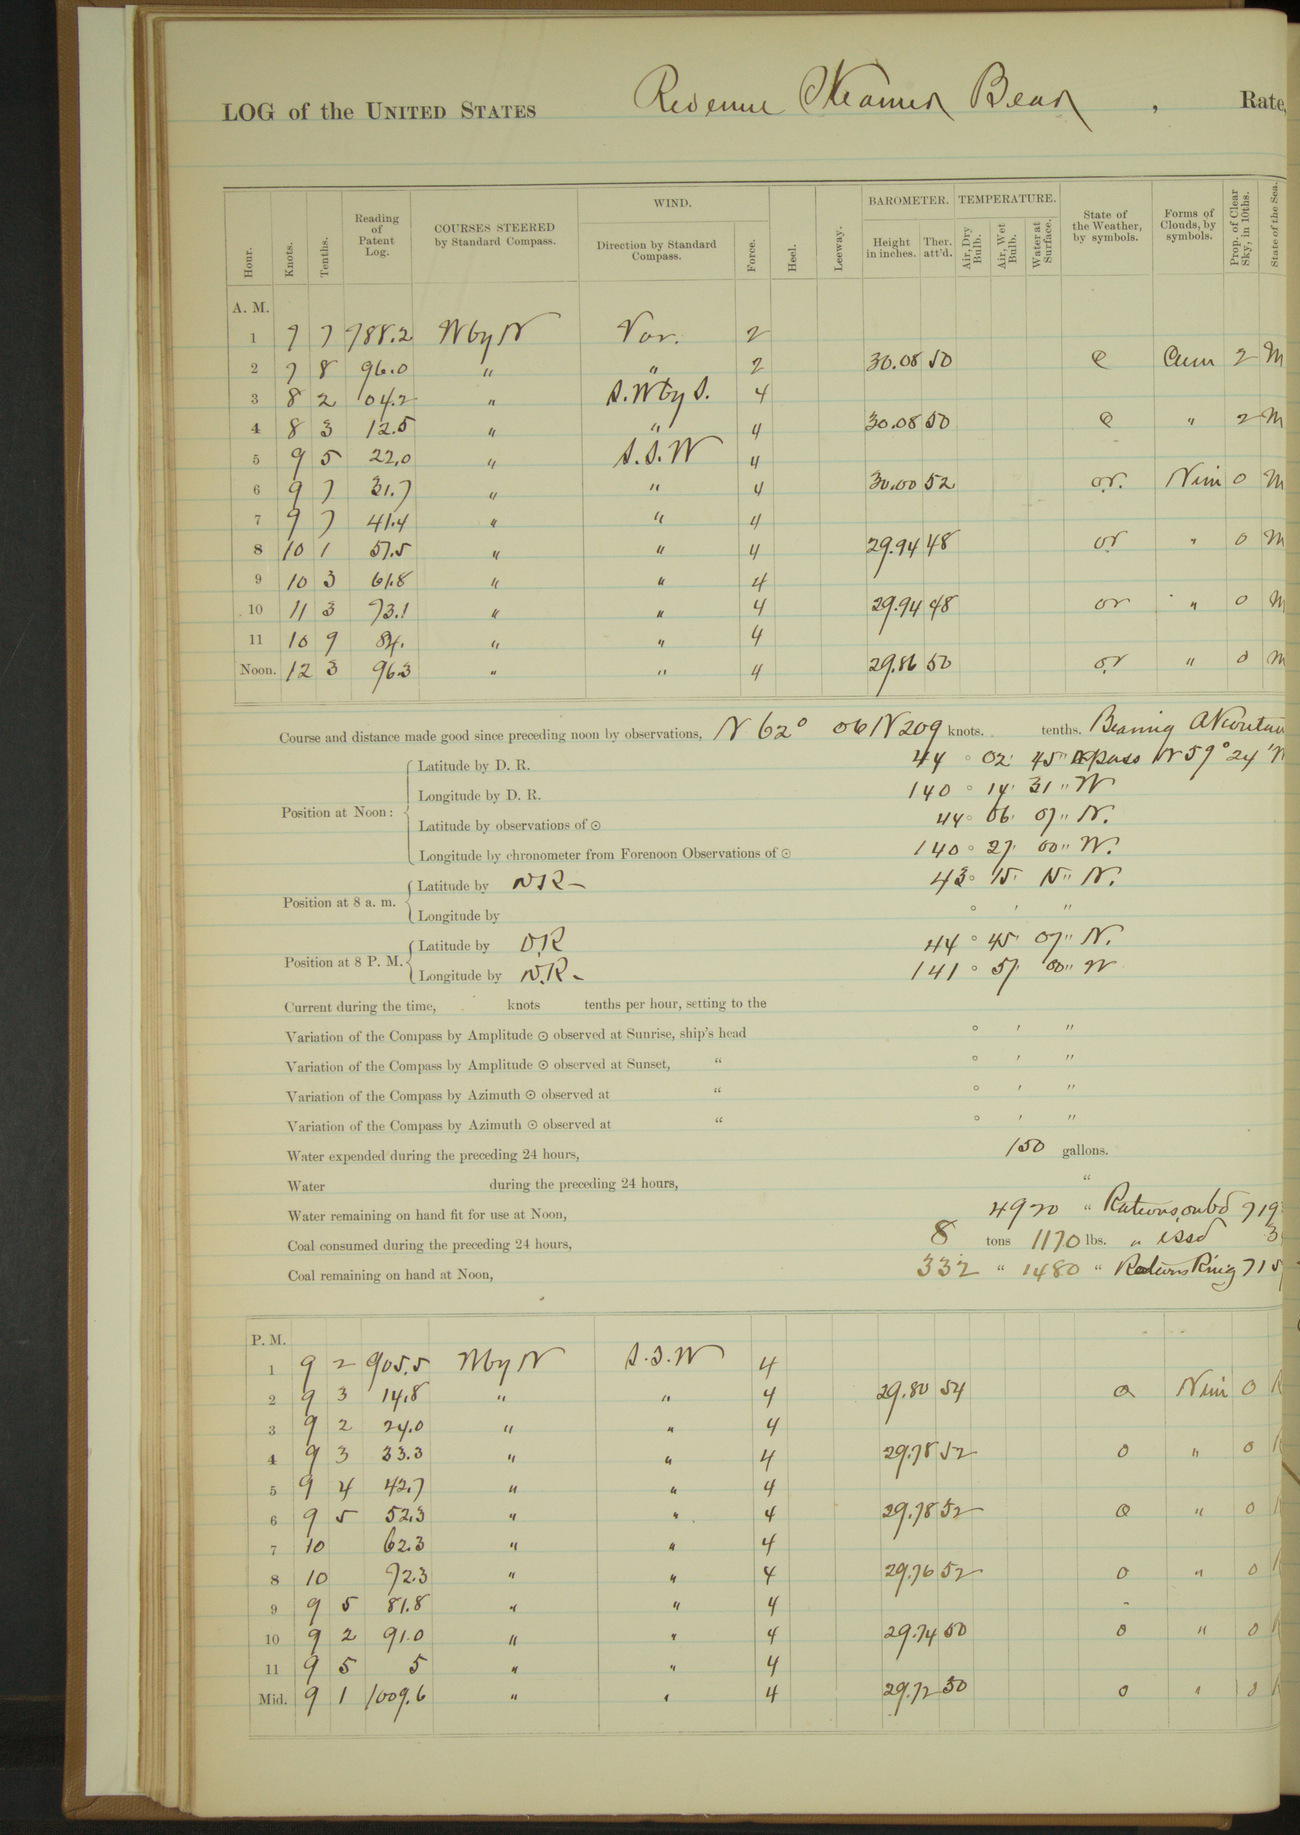 LOG of the UNITED STATES Revenue Steamer Bear , Rate,
Hour. Knots. Tenths. Reading of Patent Log. COURSES STEERED by Standard Compass. WIND. Direction by Standard Compass. Force. Heel. Leeway. BAROMETER. Height in inches. Ther. att'd. TEMPERATURE. Air, Dry Bulb. Air, Wet Bulb. Water at Surface. State of the Weather, by symbols. Forms of Clouds, by symbols. Prop. of Clear Sky, in 10ths. State of the Sea.
A. M.
1 7 7 788.2 W by N Var. 2
2 7 8 96.0 " " 2 30.08 50 c Cum 2 M
3 8 2 04.2 " S.W by S. 4
4 8 3 12.5 " " 4 30.08 50 c " 2 M
5 9 5 22.0 " S.S.W 4
6 9 7 31.7 " " 4 30.00 52 o.r. Nim 0 M
7 9 7 41.4 " " 4
8 10 1 51.5 " " 4 29.94 48 or " 0 M
9 10 3 61.8 " " 4
10 11 3 73.1 " " 4 29.94 48 or " 0 M
11 10 9 84. " " 4
Noon. 12 3 96.3 " " 4 29.86 50 or " 0 M
Course and distance made good since preceding noon by observations, N 62° 06 W 209 knots. tenths. Bearing
Position at Noon:
Latitude by D. R. 44 ° 02 ' 45 " pass N 59° 24'
Longitude by D. R. 140 ° 14 ' 31 " W
Latitude by observations of ☉ 44 ° 06 ' 07 " N.
Longitude by chronometer from Forenoon Observations of ☉ 140 ° 27 ' 00 " W.
Position at 8 a. m.
Latitude by D.R. 43 ° 15 ' 15 " N.
Longitude by ° ' "
Position at 8 P. M.
Latitude by D.R. 44 ° 45 ' 07 " N.
Longitude by D.R. 141 ° 57 ' 00 " W
Current during the time, knots tenths per hour, setting to the
Variation of the Compass by Amplitude ☉ observed at Sunrise, ship's head ° ' "
Variation of the Compass by Amplitude ☉ observed at Sunset, " ° ' "
Variation of the Compass by Azimuth ☉ observed at " ° ' "
Variation of the Compass by Azimuth ☉ observed at " ° ' "
Water expended during the preceding 24 hours, 150 gallons.
Water during the preceding 24 hours, "
Water remaining on hand fit for use at Noon, 4920 " Rations on bd 719
Coal consumed during the preceding 24 hours, 8 tons 1170 lbs. " issd 3
Coal remaining on hand at Noon, 332 " 1480 " Rations Rmg 715
P. M.
1 9 2 905.5 W by N S.S.W 4
2 9 3 14.8 " " 4 29.80 54 o Nim 0
3 9 2 24.0 " " 4
4 9 3 33.3 " " 4 29.78 52 o " 0
5 9 4 42.7 " " 4
6 9 5 52.3 " " 4 29.78 52 o " 0
7 10 62.3 " " 4
8 10 72.3 " " 4 29.76 52 o " 0
9 9 5 81.8 " " 4
10 9 2 91.0 " " 4 29.74 50 o " 0
11 9 5 5 " " 4
Mid. 9 1 1009.6 " " 4 29.72 50 o " 0